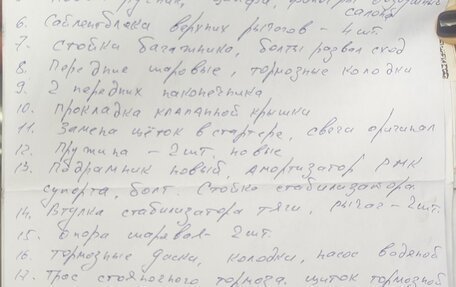 салона
6. Саблентблока верхних рычагов - 4 шт.
7. Стойки багажника, болты развал сход
8. Передние шаровые, тормозные колодки
9. 2 передних наконечника
10. Прокладка клапанной крышки
11. Замена щёток в стартере, свечи оригинал
12. Пружина - 2 шт. новые
13. Подрамник новый, амортизатор РМК
суперта, болт. Стойка стабилизатора
14. Втулка стабилизатора тяги, рычаг - 2 шт.
15. Опора шаровая - 2 шт
16. Тормозные диски, колодки, насос водяной
17. Трос стояночного тормоза, щиток тормозной